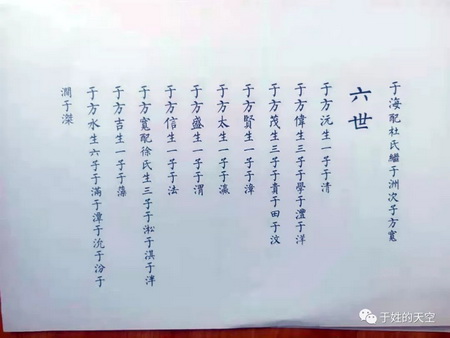 于海配杜氏繼于洲次子方寬
六世
于方沅生一子于清
于方偉生三子于學于澧于洋
于方茂生三子于貴于田于汶
于方賢生一子于漳
于方太生一子于瀛
于方盛生一子于渭
于方信生一子于法
于方寬配徐氏生三子于淞于淇于泮
于方吉生一子于藻
于方水生六子于滿于潭于沇于汾于
澗于滐
于姓的天空